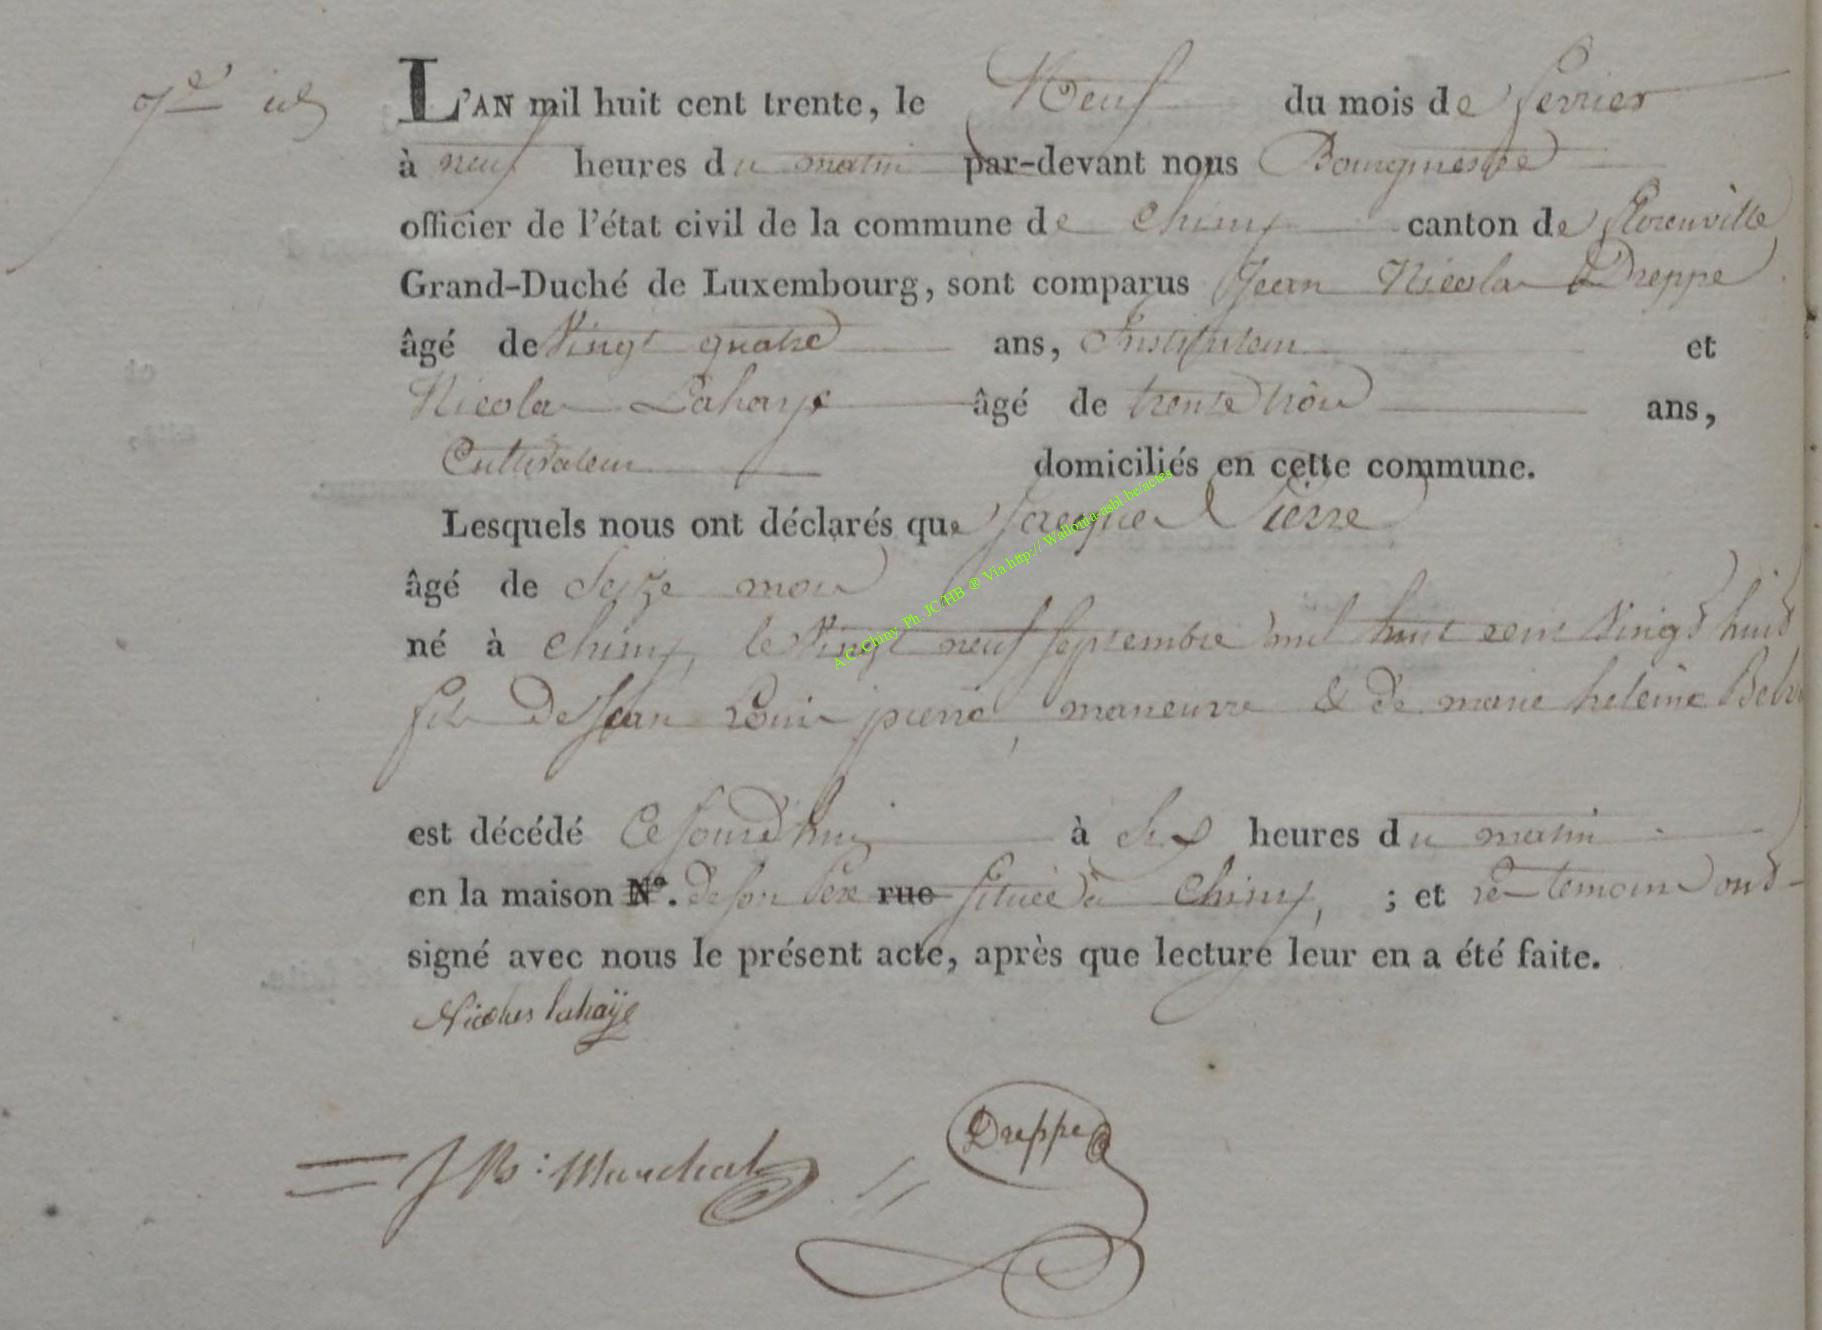 7e
L'AN mil huit cent trente, le Neuf du mois de fevrier
à neuf heures du matin par-devant nous Bourgmestre
officier de l'état civil de la commune de Chiny canton de florenville
Grand-Duché de Luxembourg, sont comparus Jean Nicolas Dreppe
âgé de Vingt quatre ans, Instituteur et
Nicolas Lahaye âgé de trente trois ans,
Cultivateur domiciliés en cette commune.
Lesquels nous ont déclarés que Jacques Pierre
âgé de Seize mois
né à Chiny, le Vingt neuf septembre mil huit cent vingt huit
fils de Jean Louis pierre, maneuvre & de marie heleine
est décédé Cejourd'hui à six heures du matin
en la maison N°. de son Père rue située à Chiny, ; et les temoins ont
signé avec nous le présent acte, après que lecture leur en a été faite.
Nicolas lahaÿe
Dreppe
J B: Marchal
A.C. Chiny Ph. JC/HB ® Via http:// Wallonia-asbl.be/actes